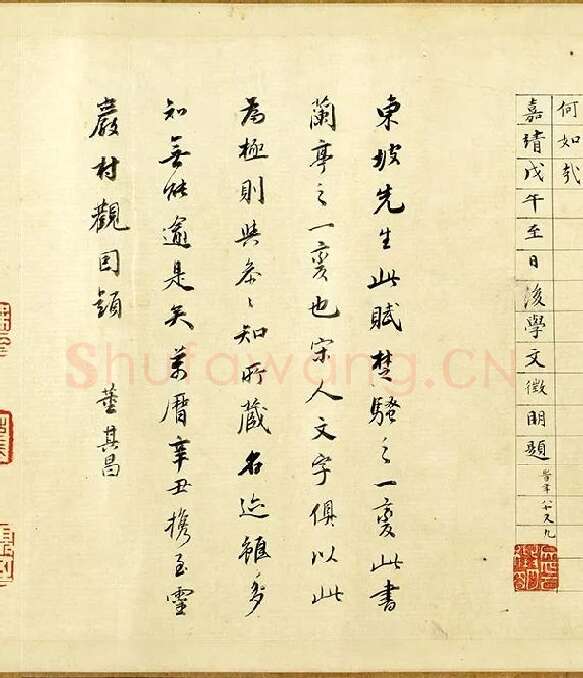 何如哉
嘉靖戊午至日後學文徵明題
時年八十又九
東坡先生此賦楚騷之一變此書
蘭亭之一變也宋人文字俱以此
為極則與參參知所藏名迹雖多
知無能逾是矣萬曆辛丑攜至靈
巖村觀因題
董其昌
Shufawang.CN